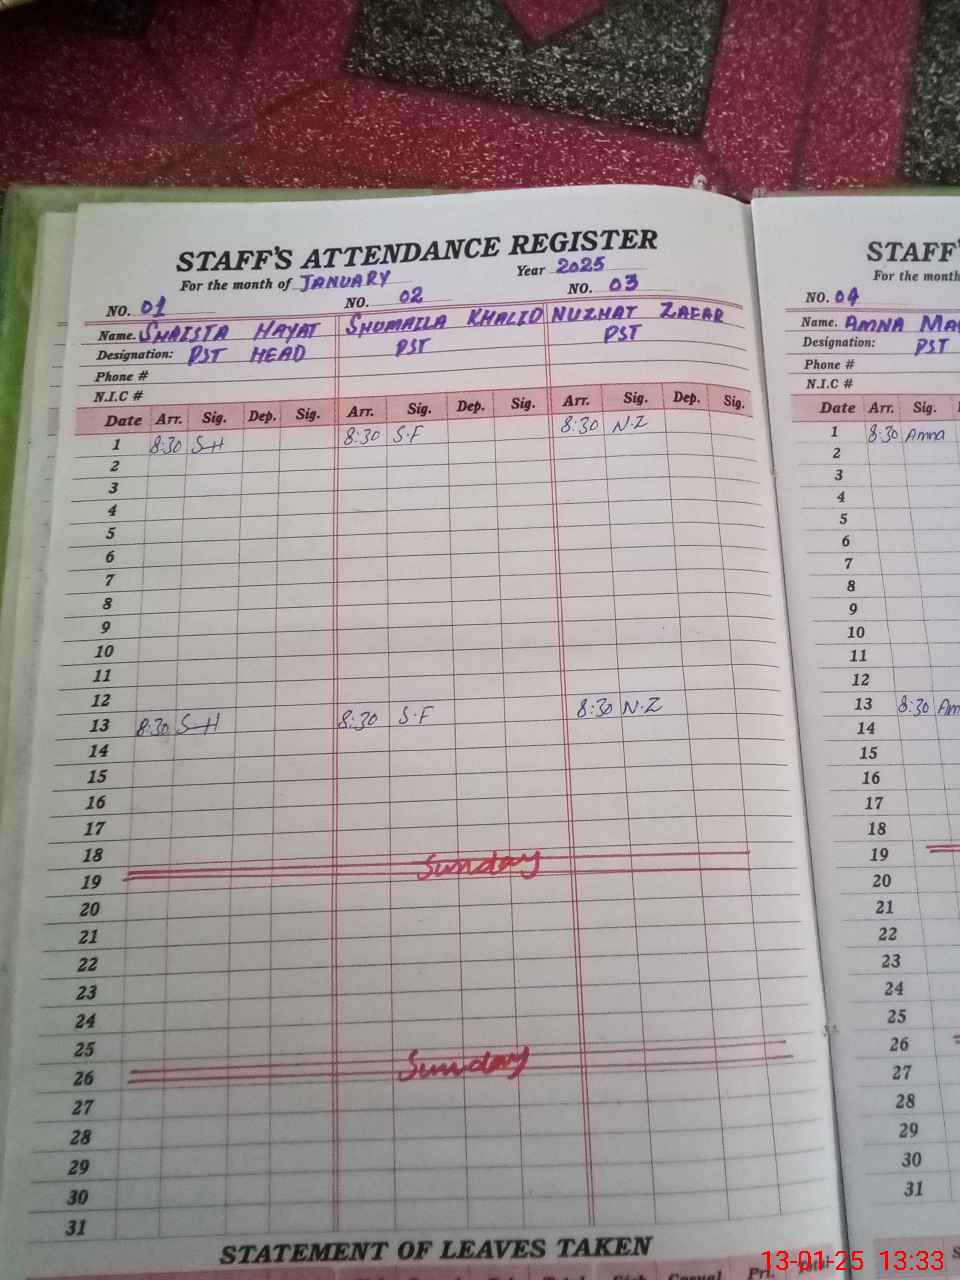 STAFF'S ATTENDANCE REGISTER
For the month of JANUARY Year 2025
NO. 01 NO. 02 NO. 03
Name. SHAISTA HAYAT SHUMAILA KHALID NUZHAT ZAFAR
Designation: PST HEAD PST PST
Phone #
N.I.C #
Date Arr. Sig. Dep. Sig. Arr. Sig. Dep. Sig. Arr. Sig. Dep. Sig.
1 8:30 S-H 8:30 S.F 8:30 N.Z
2
3
4
5
6
7
8
9
10
11
12
13 8:30 S-H 8:30 S.F 8:30 N.Z
14
15
16
17
18
19 Sunday
20
21
22
23
24
25
26 Sunday
27
28
29
30
31
STATEMENT OF LEAVES TAKEN
STAFF'
For the month
NO. 04
Name. AMNA
Designation: PST
Phone #
N.I.C #
Date Arr. Sig.
1 8:30 Amna
2
3
4
5
6
7
8
9
10
11
12
13 8:30 Am
14
15
16
17
18
19
20
21
22
23
24
25
26
27
28
29
30
31
13-01-25 13:33